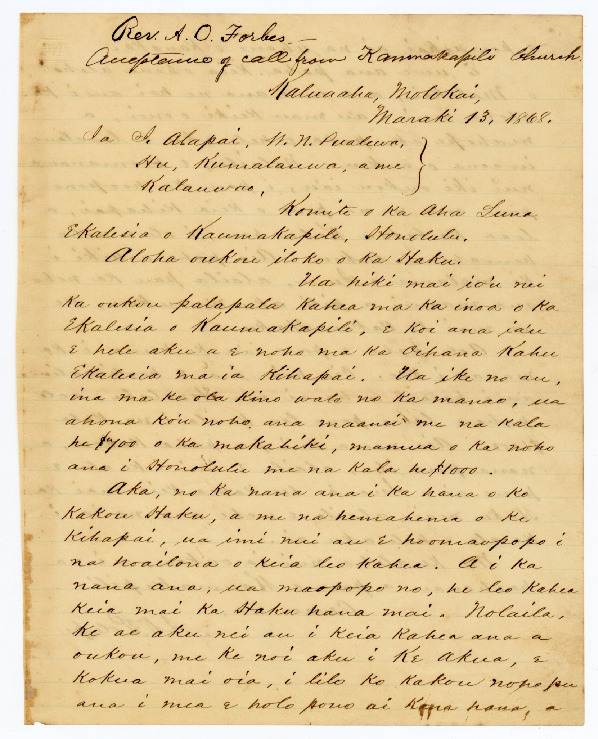 Rev. A. O. Forbes.—
Acceptance of call from Kaumakapili Church.
Kaluaaha, Molokai,
Maraki 13, 1868.
Ia I. Alapai, W. N. Pualewa,
Hu, Kumalauwa, a me
Kalauwao,
Komite o ka Aha Luna
Ekalesia o Kaumakapili, Honolulu.
Aloha oukou iloko o ka Haku.
Ua hiki mai io'u nei
ka oukou palapala kahea ma ka inoa o ka
Ekalesia o Kaumakapili, e koi ana ia'u
e hele aku a e noho ma ka Oihana Kahu
Ekalesia ma ia Kihapai. Ua ike no au,
ina ma ke ola kino wale no ka manao, ua
ahona ko'u noho ana maanei me na kala
he $700 o ka makahiki, mamua o ka noho
ana i Honolulu me na kala he $1000.
Aka, no ka nana ana i ka hana o ko
kakou Haku, a me na hemahema o ke
Kihapai, ua imi nui au e hoomaopopo i
na hoailona o keia leo kahea. A i ka
nana ana, ua maopopo no, he leo kahea
keia mai ka Haku hana mai. Nolaila,
ke ae aku nei au i keia kahea ana a
oukou, me ke noi aku i ke Akua, e
kokua mai oia, i lilo ko kakou noho pu
ana i mea e holo pono ai kana hana, a